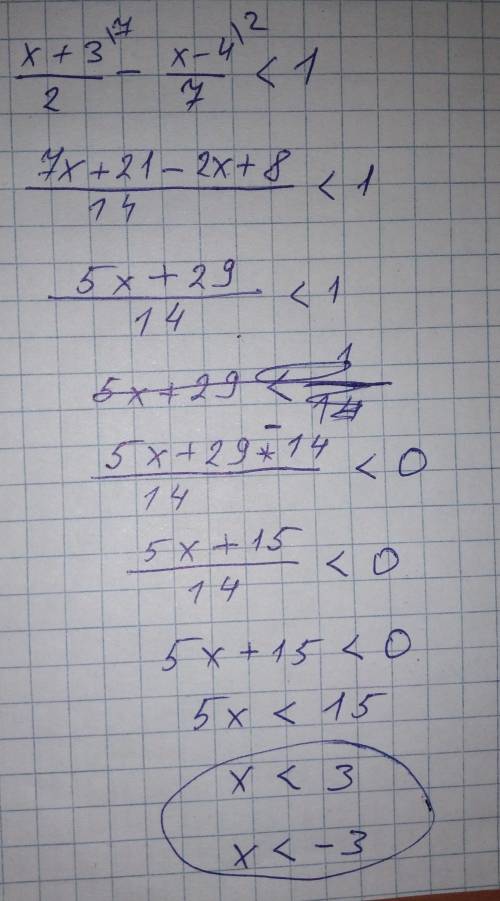 (x + 3)/2 \7 − (x − 4)/7 \2 < 1
(7x + 21 − 2x + 8)/14 < 1
(5x + 29)/14 < 1
5x + 29 <
(5x + 29 − 14)/14 < 0
(5x + 15)/14 < 0
5x + 15 < 0
5x < 15
x < 3
x < −3